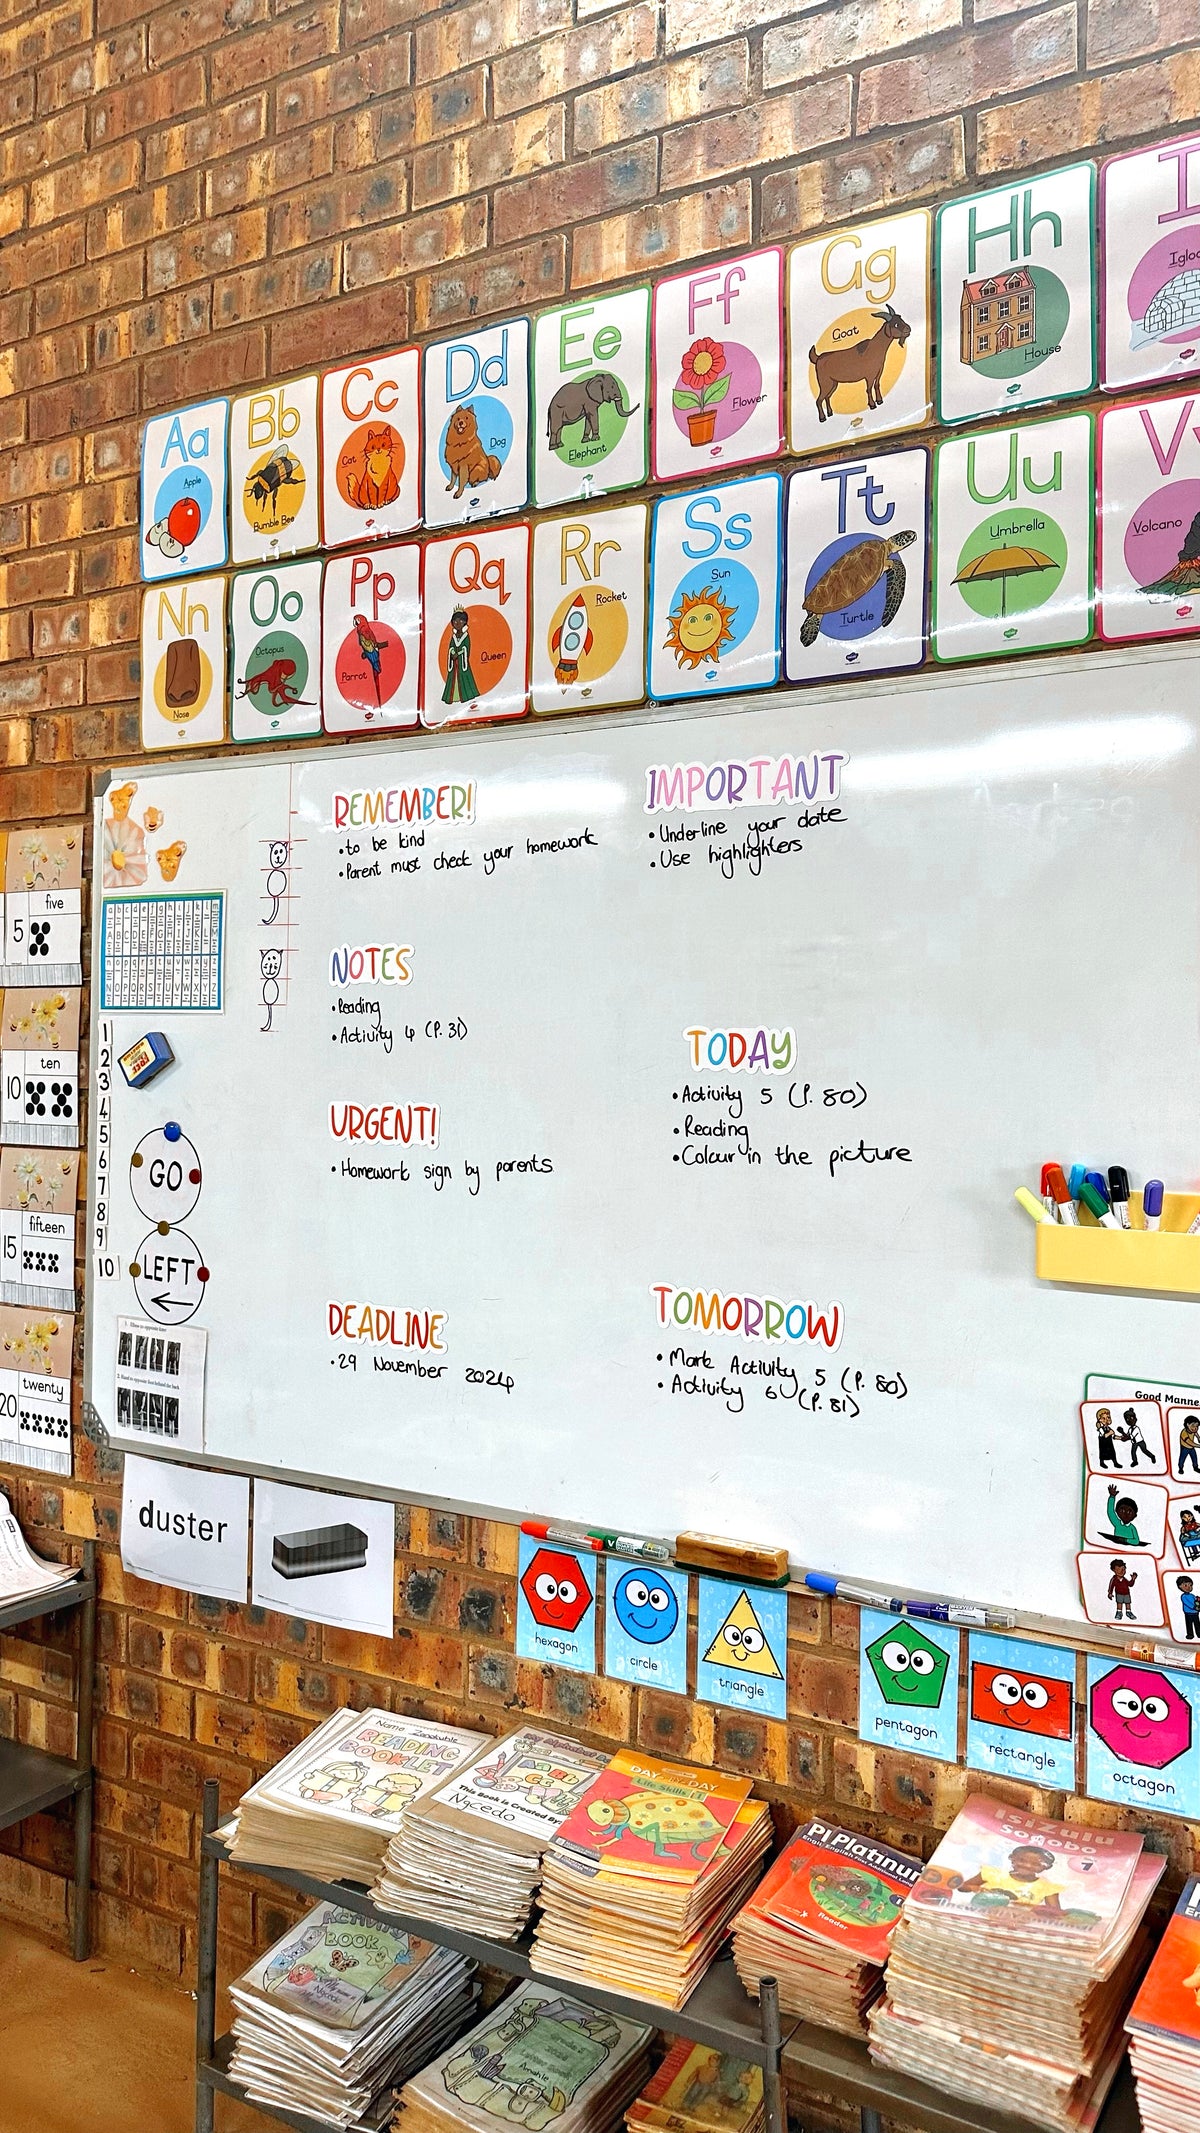 Aa
Apple
Bb
Bumble Bee
Cc
Cat
Dd
Dog
Ee
Elephant
Ff
Flower
Gg
Goat
Hh
House
Nn
Nose
Oo
Octopus
Pp
Parrot
Qq
Queen
Rr
Rocket
Ss
Sun
Tt
Turtle
Uu
Umbrella
Volcano
REMEMBER!
• to be kind
• Parent must check your homework
IMPORTANT
• Underline your date
• Use highlighters
NOTES
• Reading
• Activity 4 (P. 31)
URGENT!
• Homework sign by parents
TODAY
• Activity 5 (P. 80)
• Reading
• Colour in the picture
DEADLINE
• 29 November 2024
TOMORROW
• Mark Activity 5 (P. 80)
• Activity 6 (P. 81)
5
five
10
ten
15
fifteen
20
twenty
1
2
3
4
5
6
7
8
9
10
GO
LEFT
Good
duster
hexagon
circle
triangle
pentagon
rectangle
octagon
Name
READING
BOOKLET
This Book is Created By:
Ngcedo
DAY BY DAY
Life Skills 1
Platinum
English First Additional
Reader
IsiZulu
Sosobo
1
ACTIVITY
BOOK